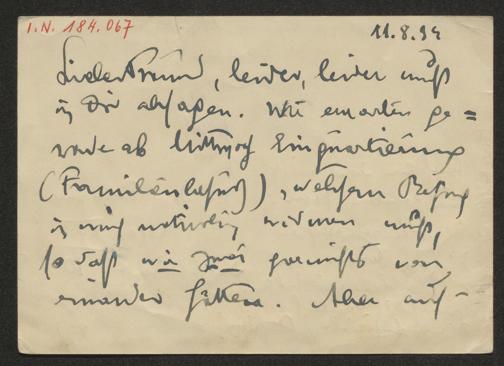 I.N. 184.067
11.8.34
Lieber Freund, leider, leider muß
ich Dir absagen. Wir erwarten ge=
rade ab Mittwoch Einquartierung
(Familienbesuch), welchem Besuch
ich mich natürlich widmen muß,
so daß wir zwei garnichts von
einander hätten. Aber auf-